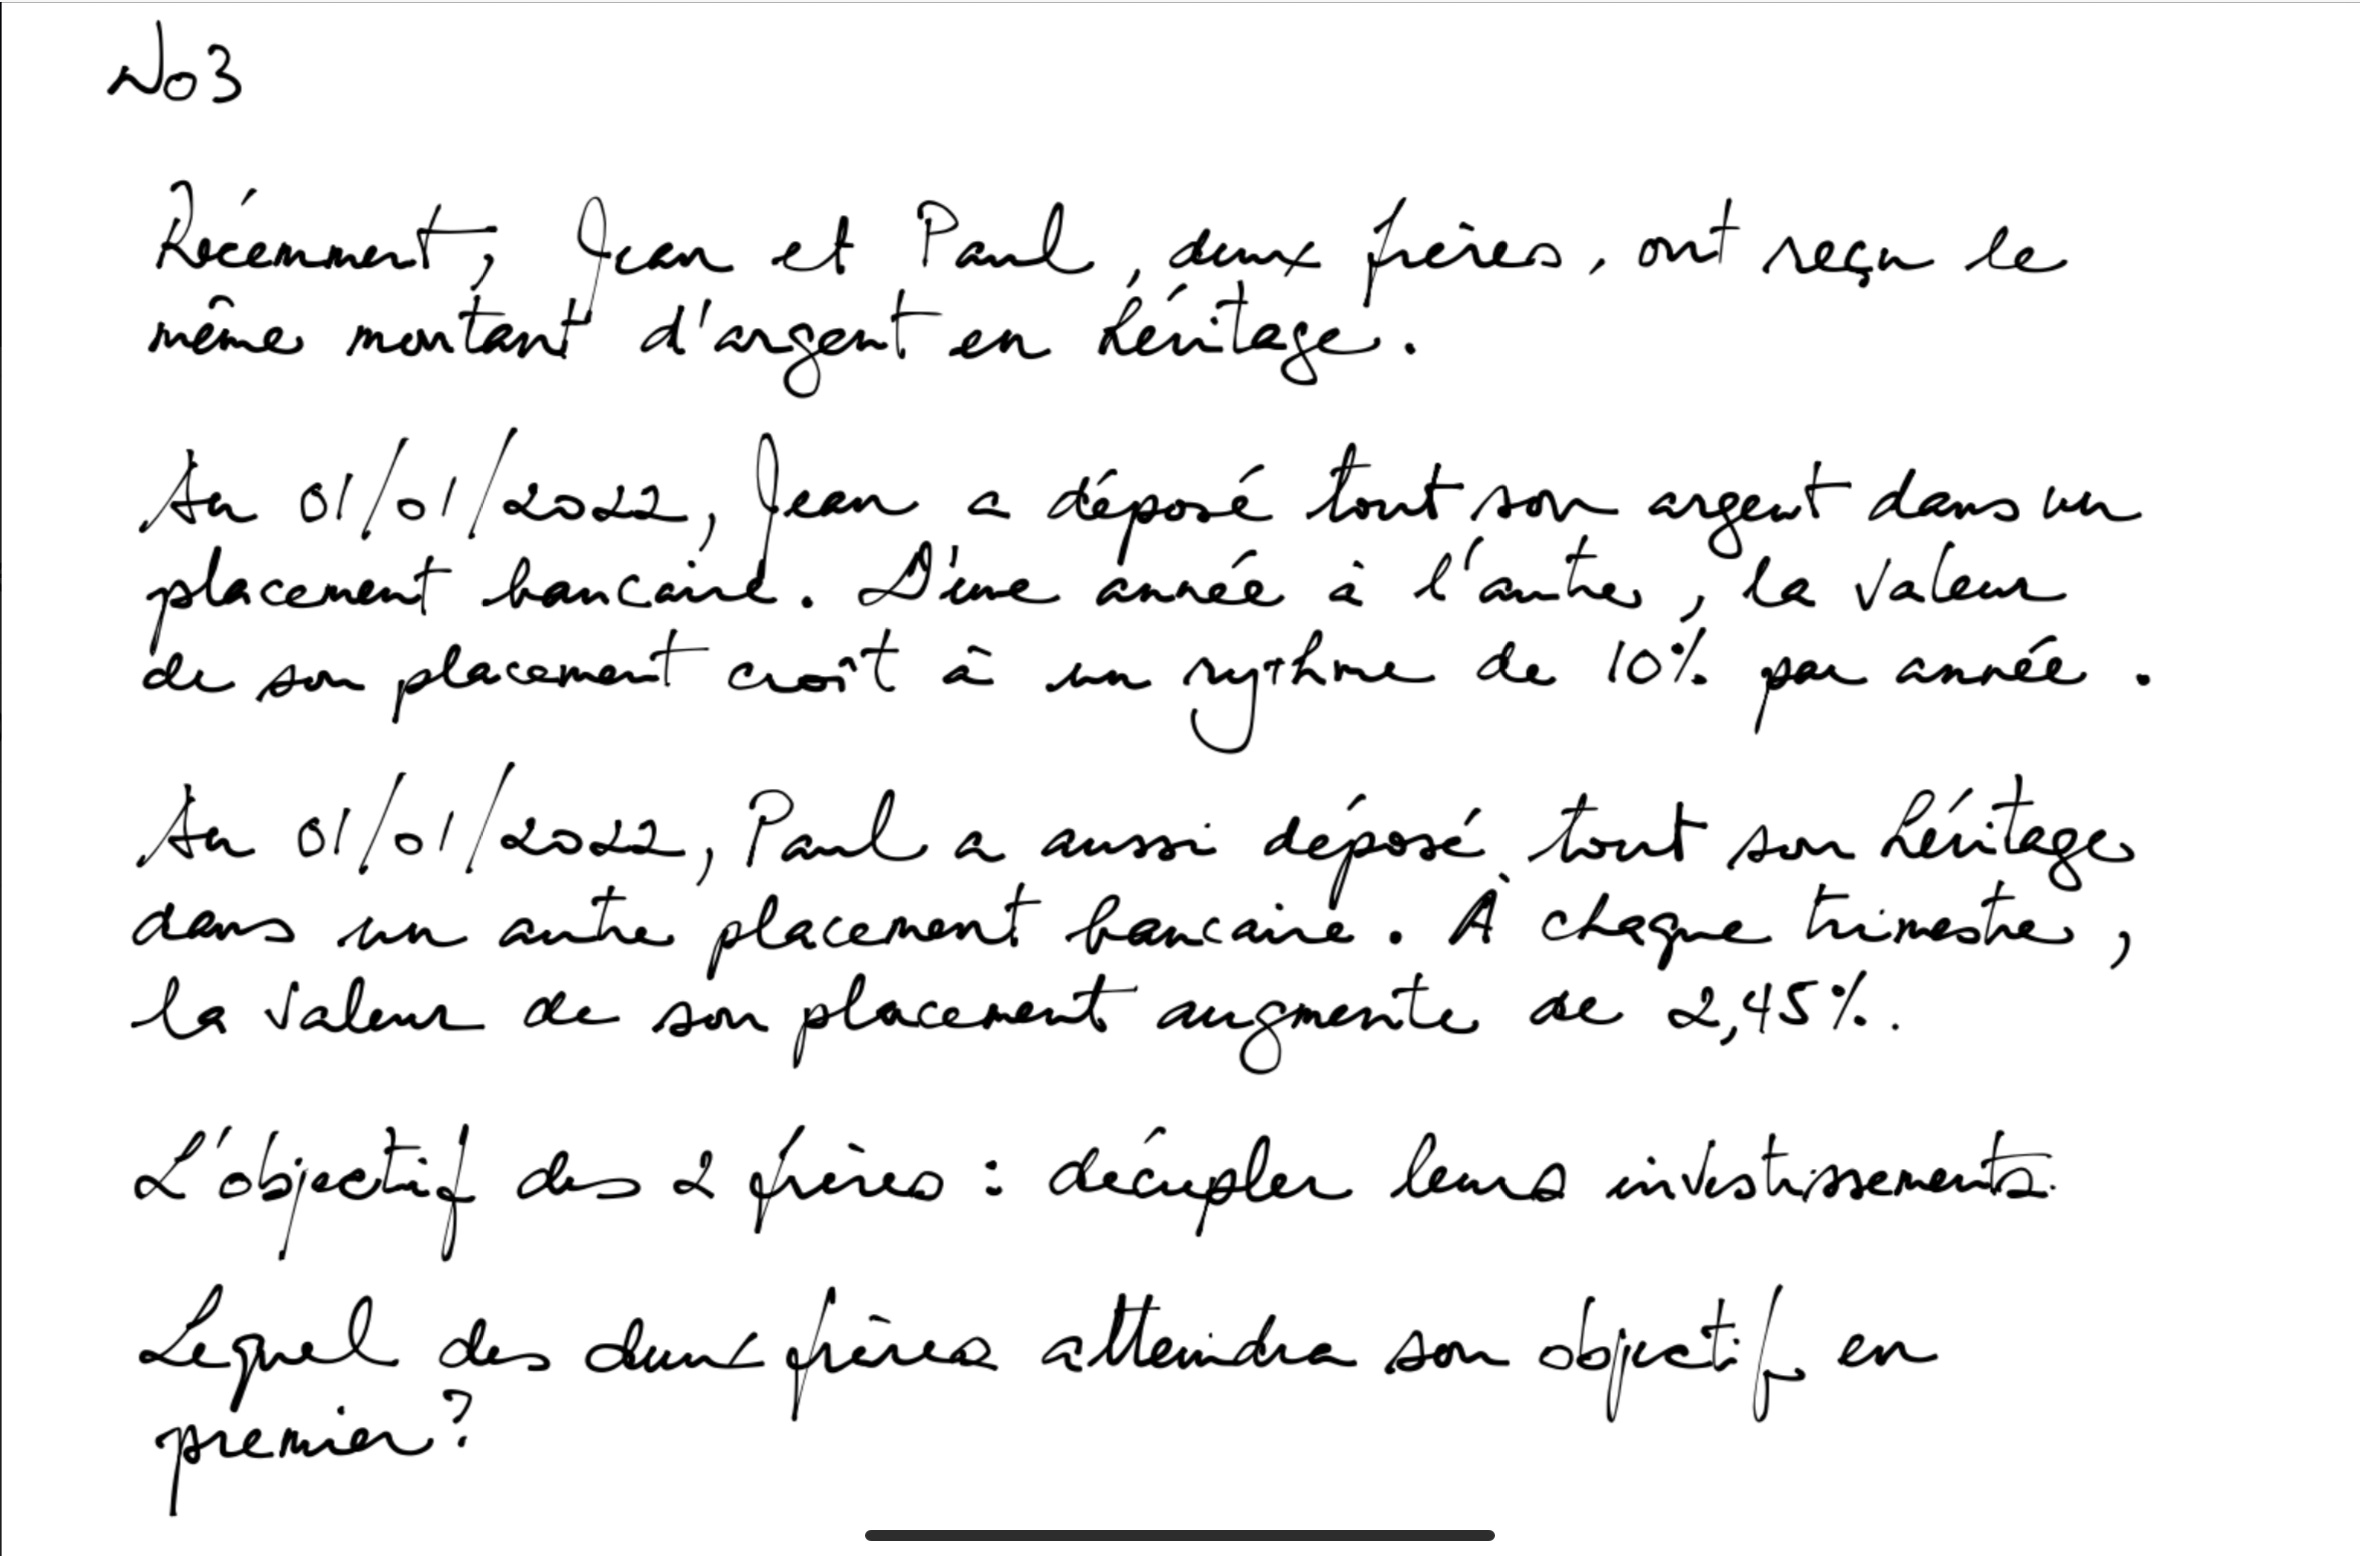 No3
Récemment, Jean et Paul, deux frères, ont reçu le
même montant d'argent en héritage.
Au 01/01/2022, Jean a déposé tout son argent dans un
placement bancaire. D'une année à l'autre, la valeur
de son placement croît à un rythme de 10% par année.
Au 01/01/2022, Paul a aussi déposé tout son héritage
dans un autre placement bancaire. À chaque trimestre,
la valeur de son placement augmente de 2,45%.
L'objectif des 2 frères : décupler leurs investissements.
Lequel des deux frères atteindra son objectif en
premier?